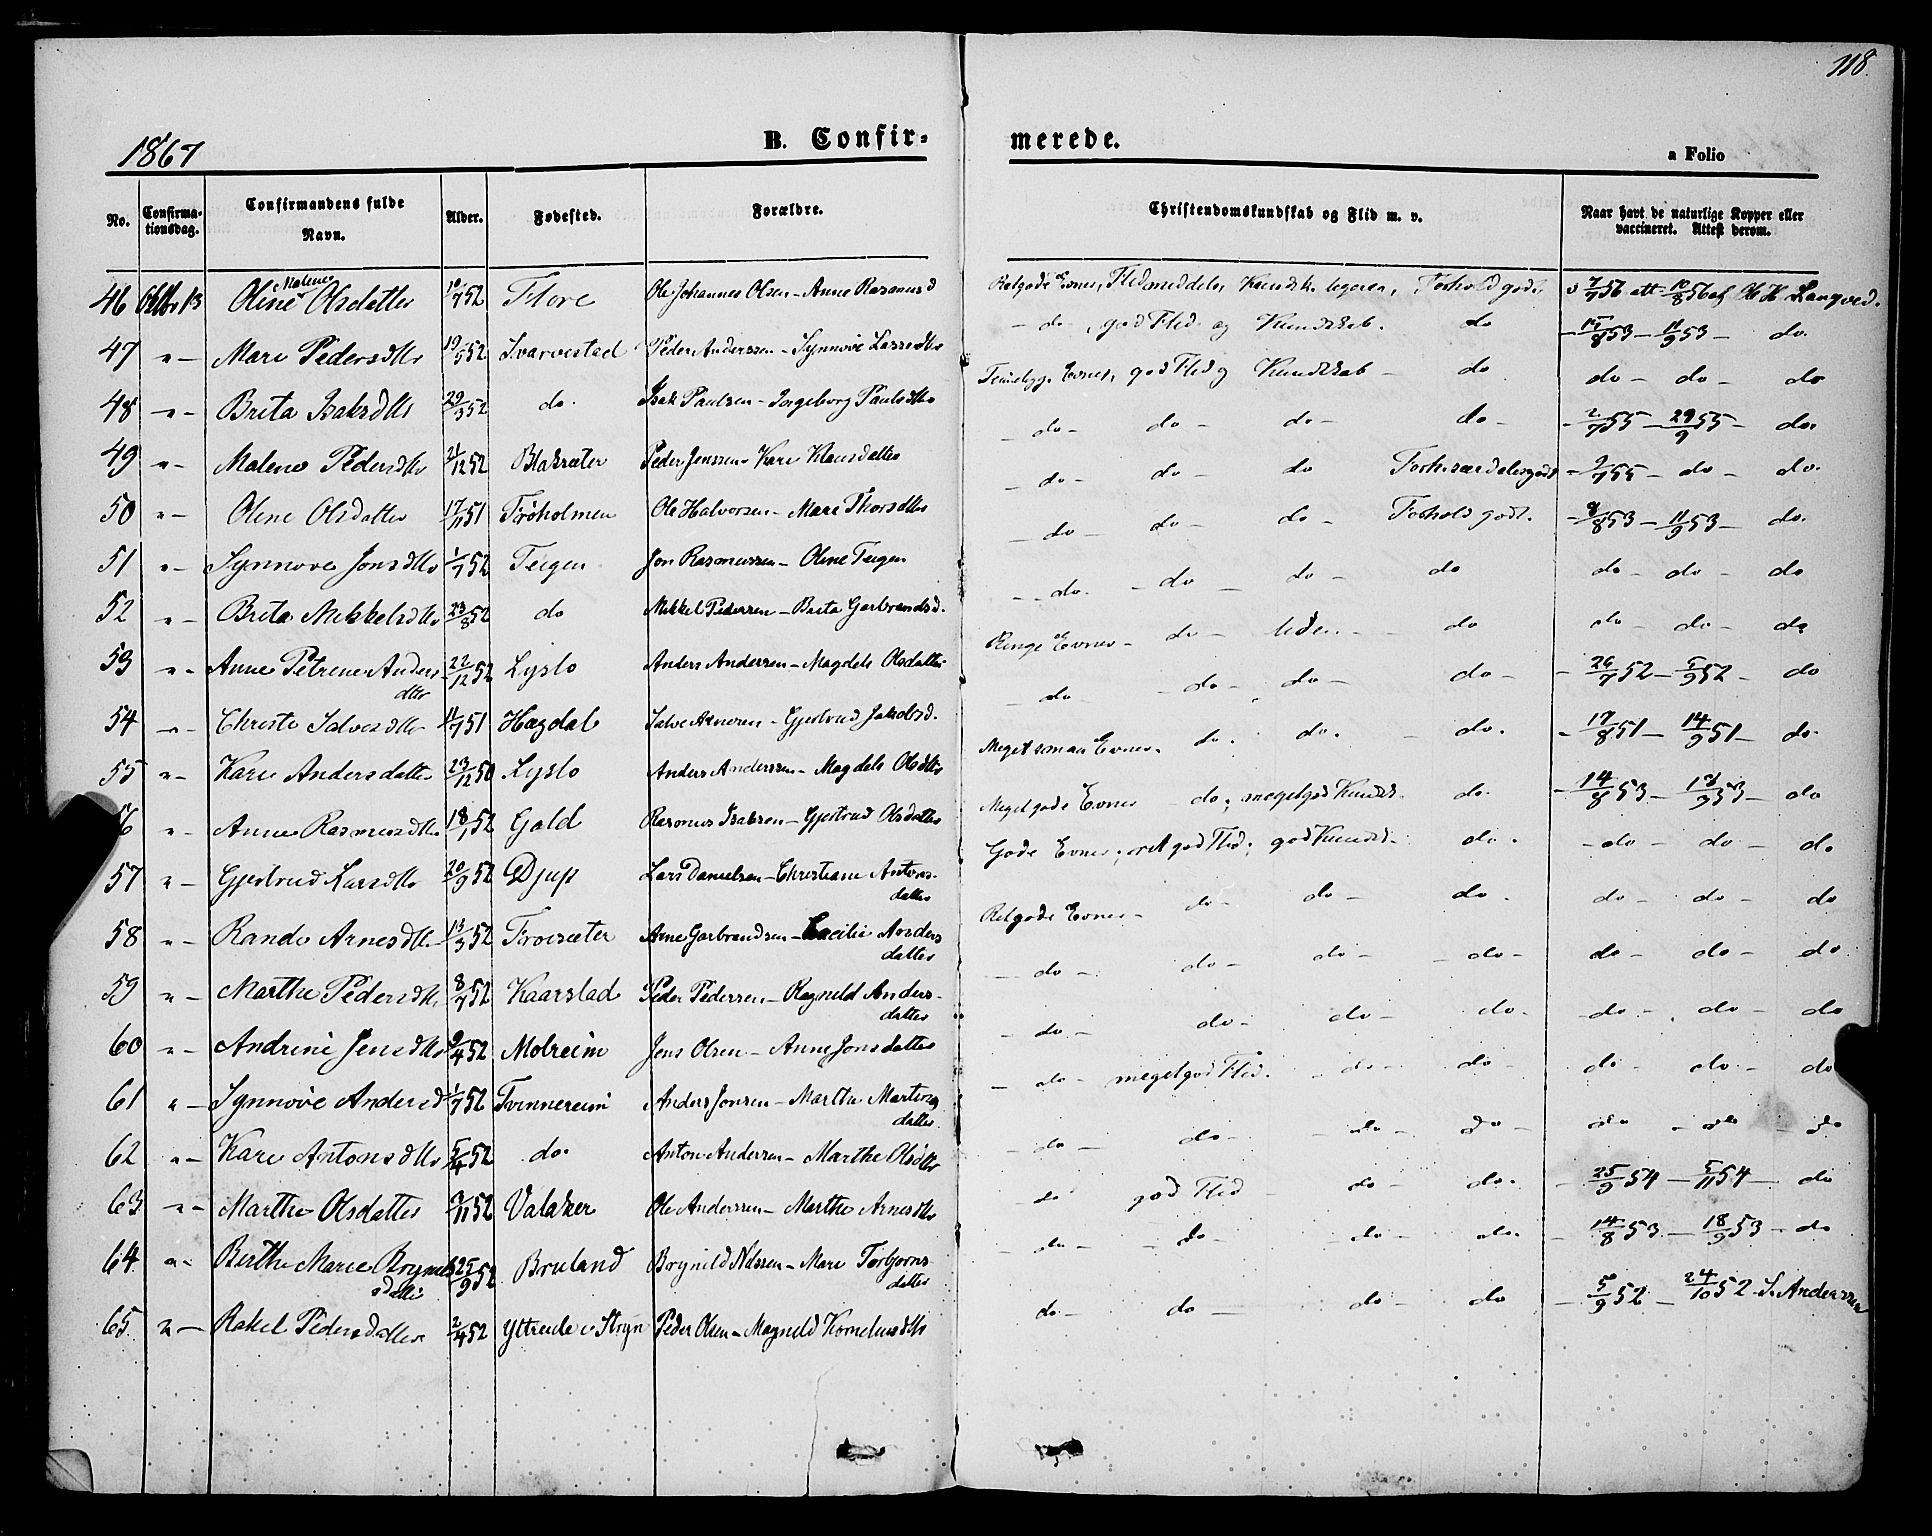 118.
1867
B. Confirmerede.
a Folio
No. Confirmationsdag. Confirmandens fulde Navn. Alder. Fødested. Forældre. Christendomskundskab og Flid m. v. Naar havt de naturlige Kopper eller vaccineret. Attest derom.
46 Oktbr 13 Oline Malene Olsdatter 10/7 52 Flore Ole Johannes Olsen - Anne Rasmusd Retgode Evner, Flid middels, Kundsk. ligesaa, Forhold godt. v 7/7 56 att 10/8 56 af Ole H Langved.
47 " - Mari Pedersdtr 52 Svarvestad Peder Anderssen - Synnøve Lassedtr - do, god Flid og Kundskab. do - 15/8 53 - 11/9 53 - do.
48 " - Brita Isaksdtr 29/3 52 do. Isak Paulsen - Ingeborg Paulsdtr Evner, god Flid og Kundskab - do do - do - do
49 " - Malene Pedersdtr 21/12 52 Blaksæter Peder Jenssen - Kari Klausdatter - do - do - do - do - - 2/7 55 - 29/9 55 - do.
50 " - Oline Olsdatter 17/11 51 Trøholmen Ole Halvorsen - Mari Thorsdtr - do - do - do Forh. særdelesgodt - 2/7 55 - do - do.
51 " - Synnøve Jonsdtr 1/7 52 Teigen Jon Rasmussen - Oline Teigen - do - do - do - Forhold godt. - 8/8 53 - 11/9 53 - do.
52 " - Brita Mikkelsdtr 23/8 52 do Mikkel Pedersen - Brita Garbrandsd. - do. - do - do - do do - do - do
53 " - Anne Petrine Andersdtr 22/12 52 Lyslo Anders Andersen - Magdele Olsdatter Ringe Evner - do - liden - do do - do - do
54 " - Christi Salvesdtr 11/7 51 Hagdal Salve Arnesen - Gjertrud Jakobsd. - do - do - do - do - - 26/7 52 - 5/9 52 - do
55 " - Kari Andersdatter 23/12 50 Lyslo Anders Anderssen - Magdele Olsdtr Meget smaa Evner. do. do. - do. - 17/8 51 - 14/9 51 - do.
56 " - Anne Rasmusdtr 18/1 52 Gald Rasmus Isaksen - Gjertrud Olsdatter Meget gode Evner - do, meget god Kundsk. do. - 14/8 53 - 18/9 53 - do
57 " - Gjertrud Larsdtr 20/9 52 Djup Lars Danielsen - Christiane Antonsdatter Gode Evner, ret god Flid, god Kundsk. do. - do - do - do
58 " - Randi Arnesdtr 13/3 52 Troisæter Arne Garbrandsen - Cecilie Andersdatter Retgode Evner - do - do - do. do - do - do
59 " - Marthe Pedersdtr 8/7 52 Kaarstad Peder Pedersen - Ragnild Andersdatter - do - do - do - - do - do - do - do
60 " - Andrine Jensdtr 9/4 52 Molreim Jens Olsen - Anne Jonsdatter - do - do - do - do - - do - do - do
61 " - Synnøve Andersd 1/7 52 Tvinnereim Anders Jonsen - Marthe Martinsdatter - do - meget god Flid. - do - do - do - do - do
62 " - Kari Antonsdtr 5/4 52 do. Anton Andersen - Marthe Olsdtr - do - do - - do - do - do - do - do
63 " - Marthe Olsdatter 9/11 52 Valaker Ole Anderssen - Marthe Arnesdtr - do god Flid - do - do. - 25/9 54 - 5/11 54 - do
64 " - Berthe Marie Brynildsdatter 25/9 52 Bruland Brynild Nilssen - Mari Torbjørnsdatter - do - - do - - do - do. - 14/8 53 - 18/9 53 - do
65 " - Rakel Pedersdatter 2/4 52 Ytreide i Stryn Peder Olsen - Magnild Korneliusdtr do - do - do - do - 5/9 52 - 24/10 52 S. Anderssen